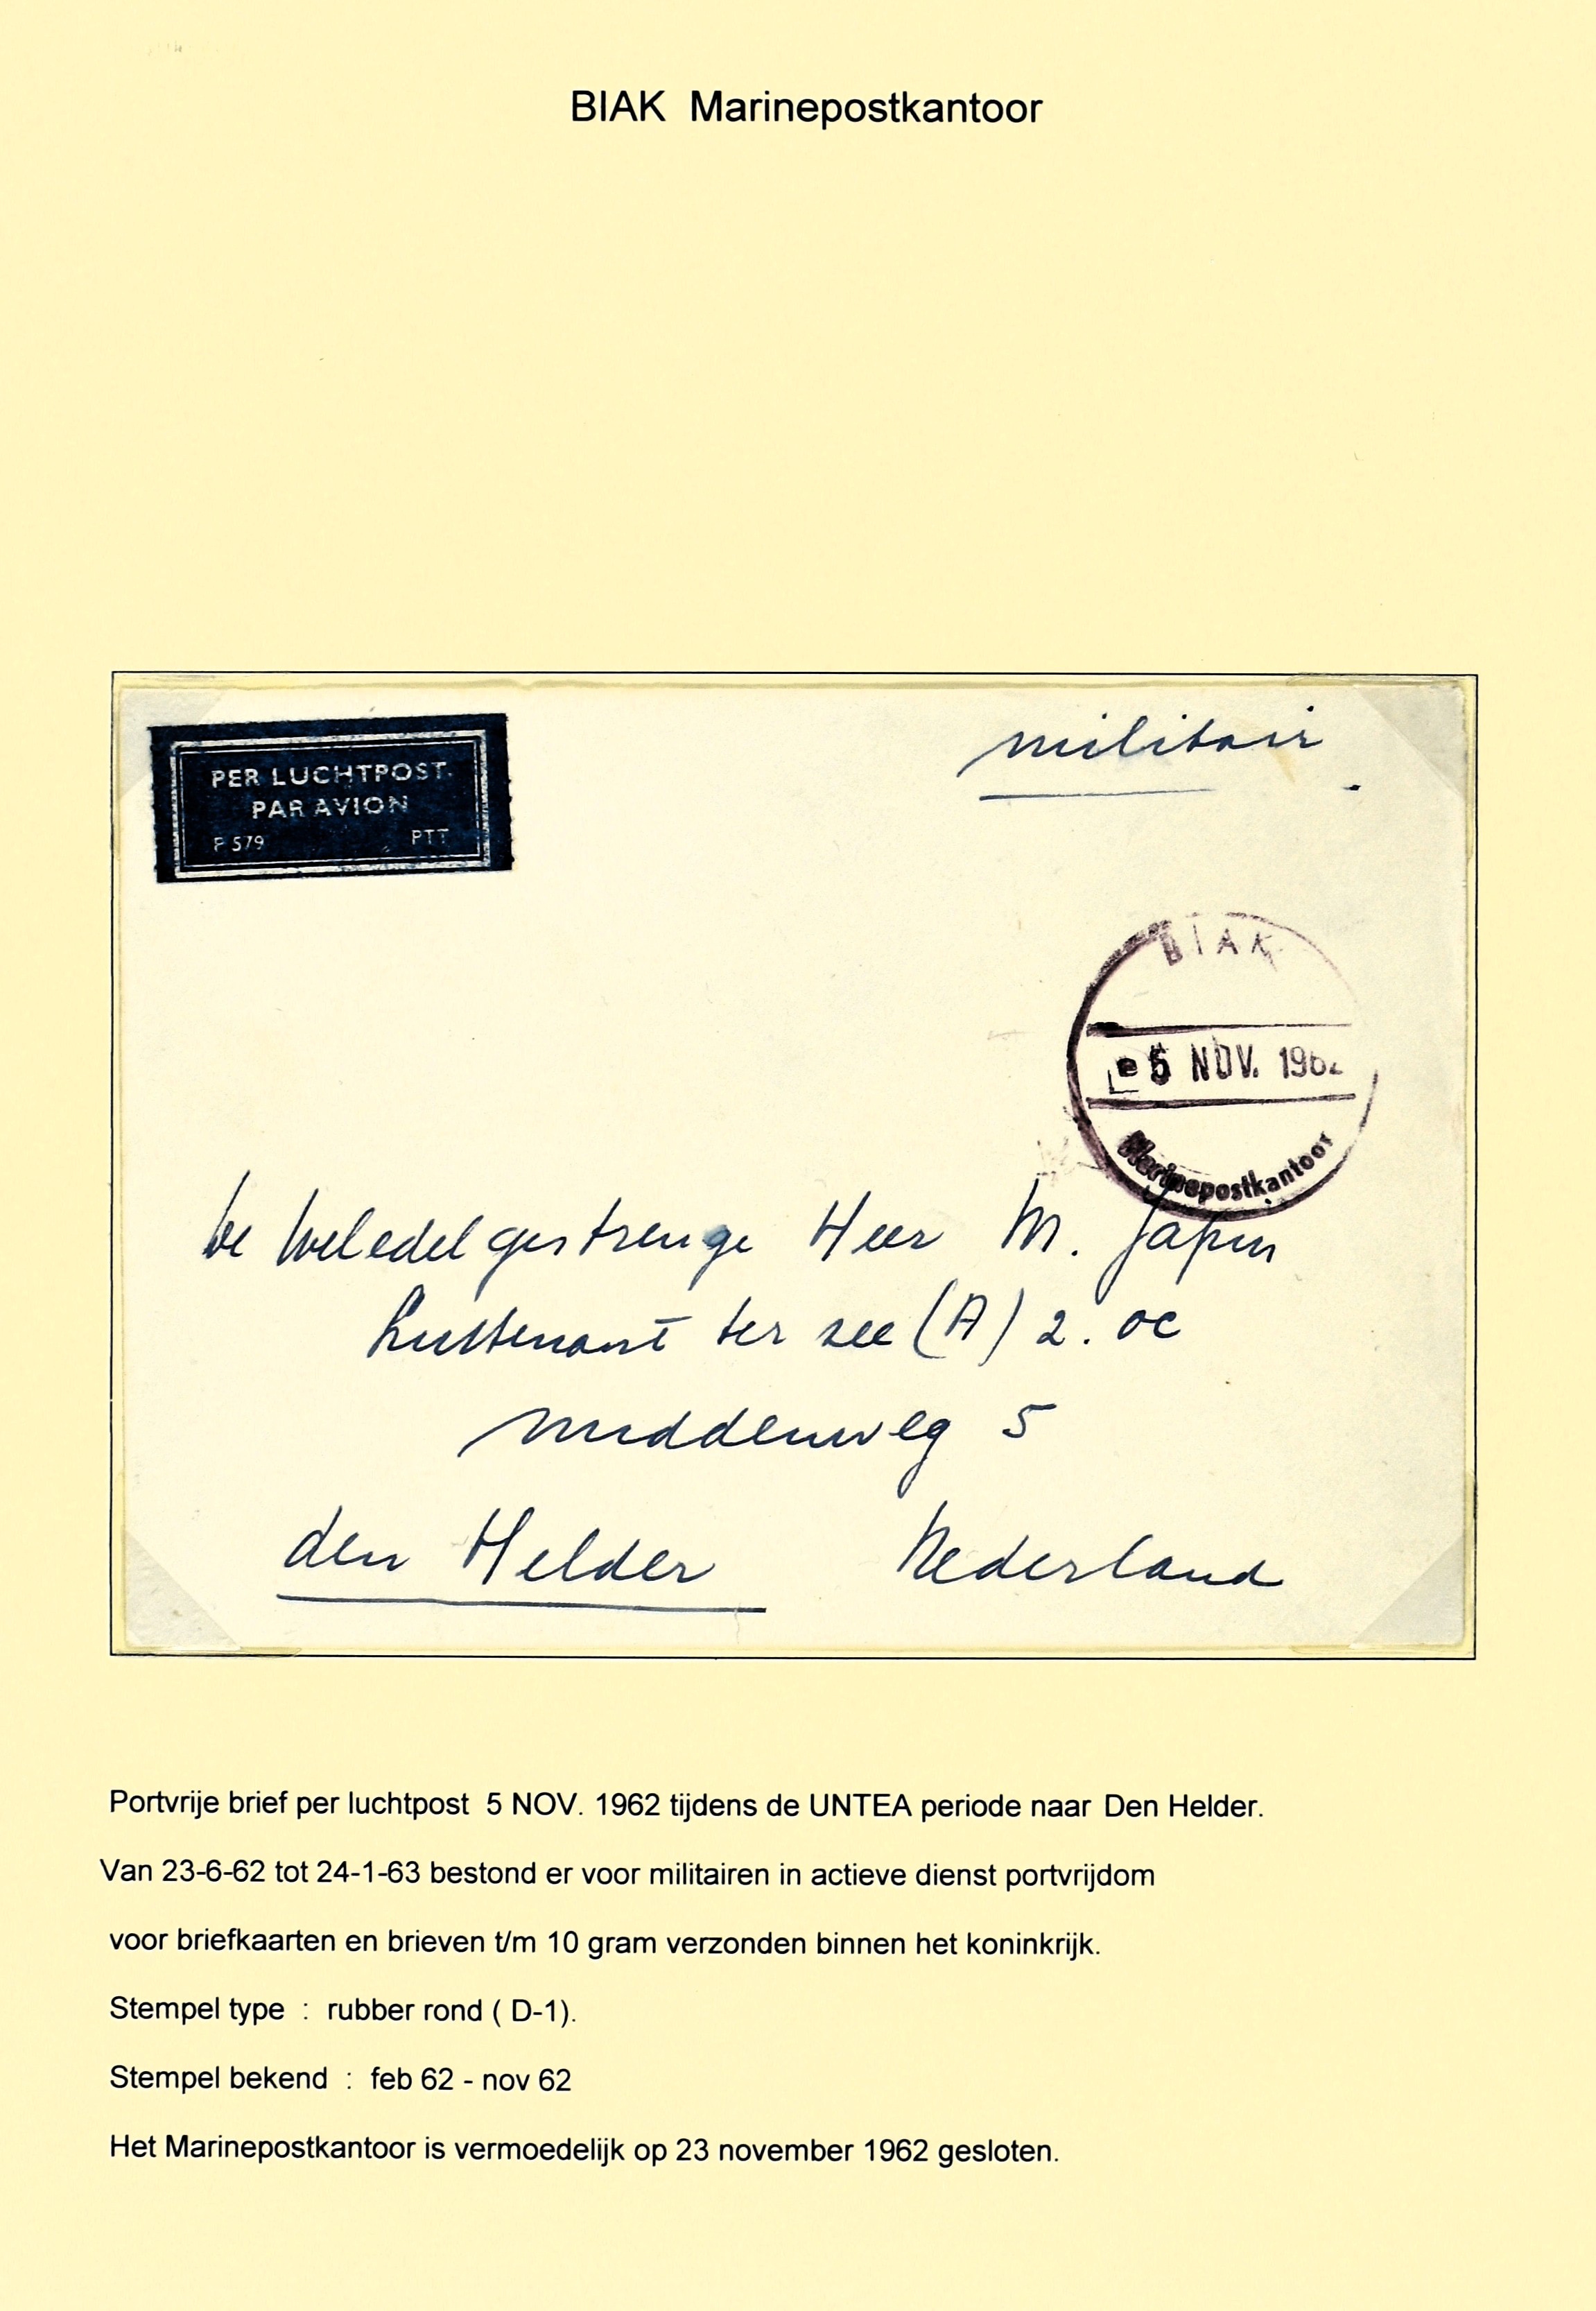 BIAK Marinepostkantoor
militair
PER LUCHTPOST.
PAR AVION
P 579 PTT
BIAK
5 NOV. 1962
Marinepostkantoor
de Weledelgestrenge Heer M. Japin
Luitenant ter zee (A) 2. OC
Middenweg 5
den Helder Nederland
Portvrije brief per luchtpost 5 NOV. 1962 tijdens de UNTEA periode naar Den Helder.
Van 23-6-62 tot 24-1-63 bestond er voor militairen in actieve dienst portvrijdom
voor briefkaarten en brieven t/m 10 gram verzonden binnen het koninkrijk.
Stempel type : rubber rond ( D-1).
Stempel bekend : feb 62 - nov 62
Het Marinepostkantoor is vermoedelijk op 23 november 1962 gesloten.